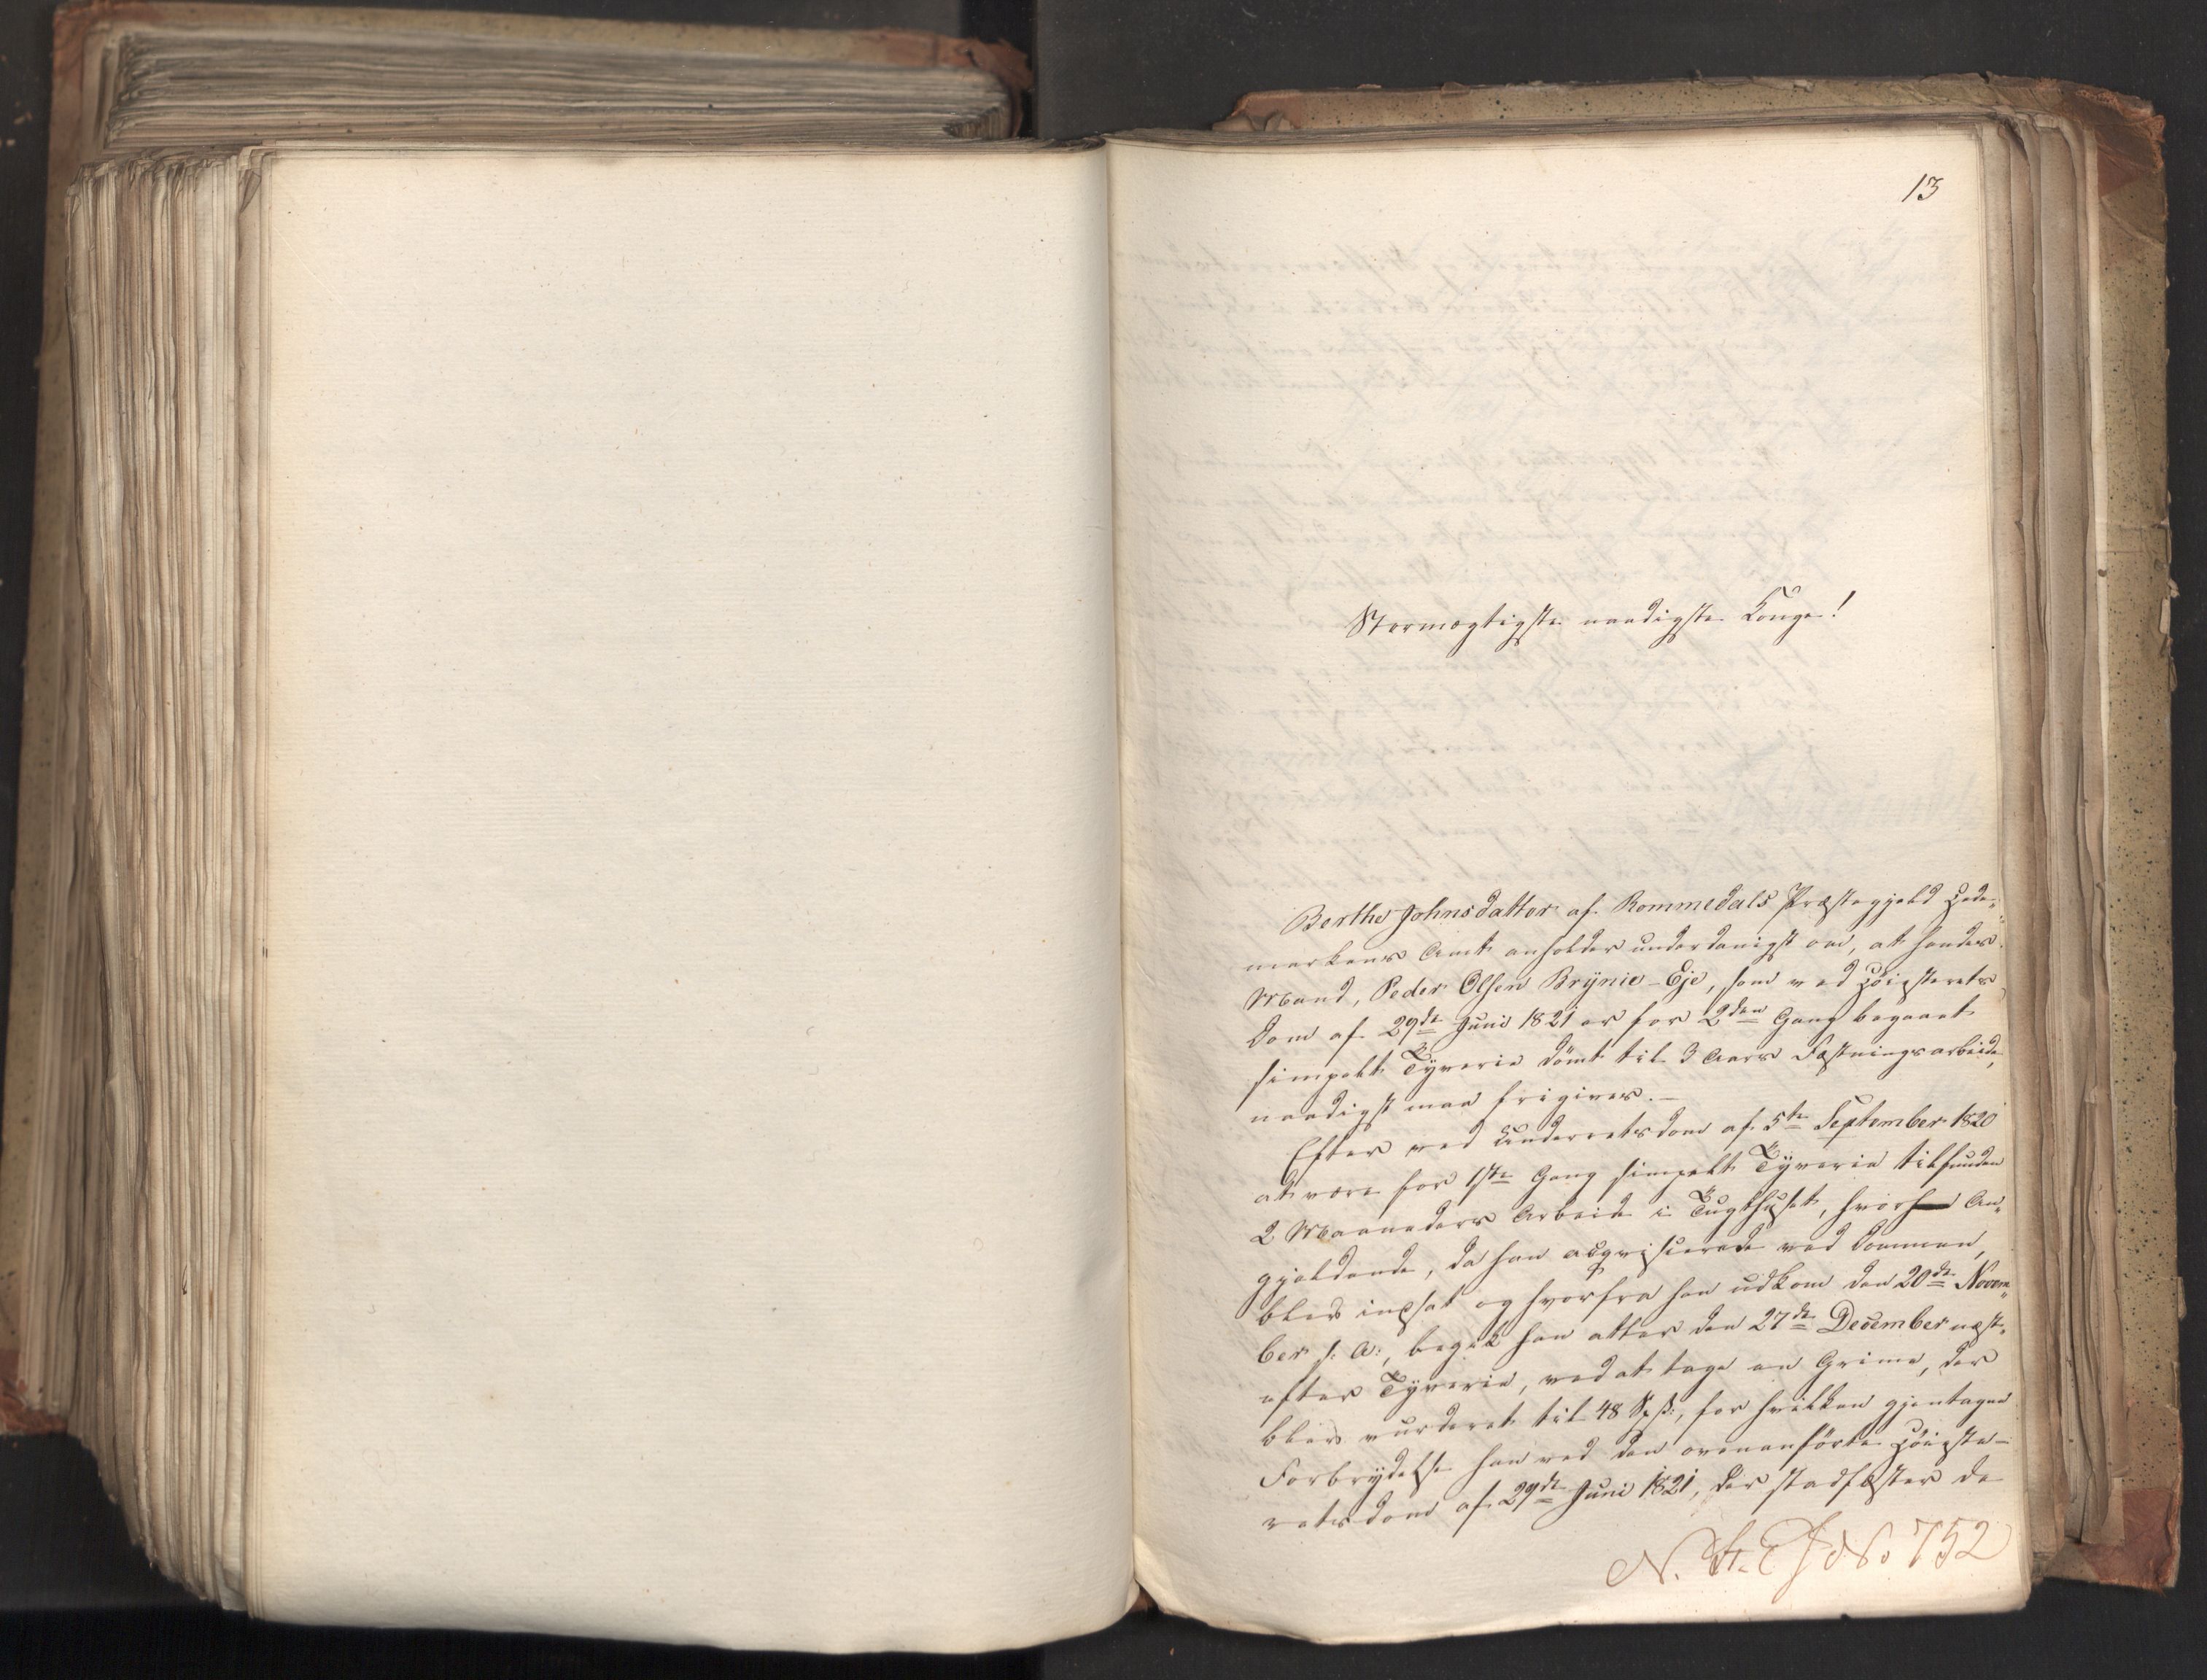 13
Stormægtigste naadigste Konge!
Berthe Johnsdatter af Rommedals Præstegjeld Hede-
markens Amt anholder underdanigst om, at hendes
Mand, Peder Olsen Brÿnie-Eje, som ved Höiesterets
Dom af 29de Juni 1821 er for 2den Gang begaaet
simpelt Tÿverie dömt til 3 Aars Fæstningsarbeide,
naadigst maa frigives.-
Efter ved Underretsdom af 5te September 1820
at være for 1ste Gang simpelt Tÿverie tilfunden
2 Maaneders Arbeide i Tugthuset, hvor An-
gjeldende, da han acqviscerede ved Dommen,
blev indsat og hvorfra han udkom den 20de Novem-
ber s: A:, begik han atter den 27de December næst-
efter Tÿverie, ved at tage en Grime, der
blev vurderet til 48 Sp ß:, for hvilken gjentagne
Forbrÿdelse han ved den ovenanförte Höieste-
retsdom af 29de Juni 1821, der stadfæster de
N. St. C J No 752